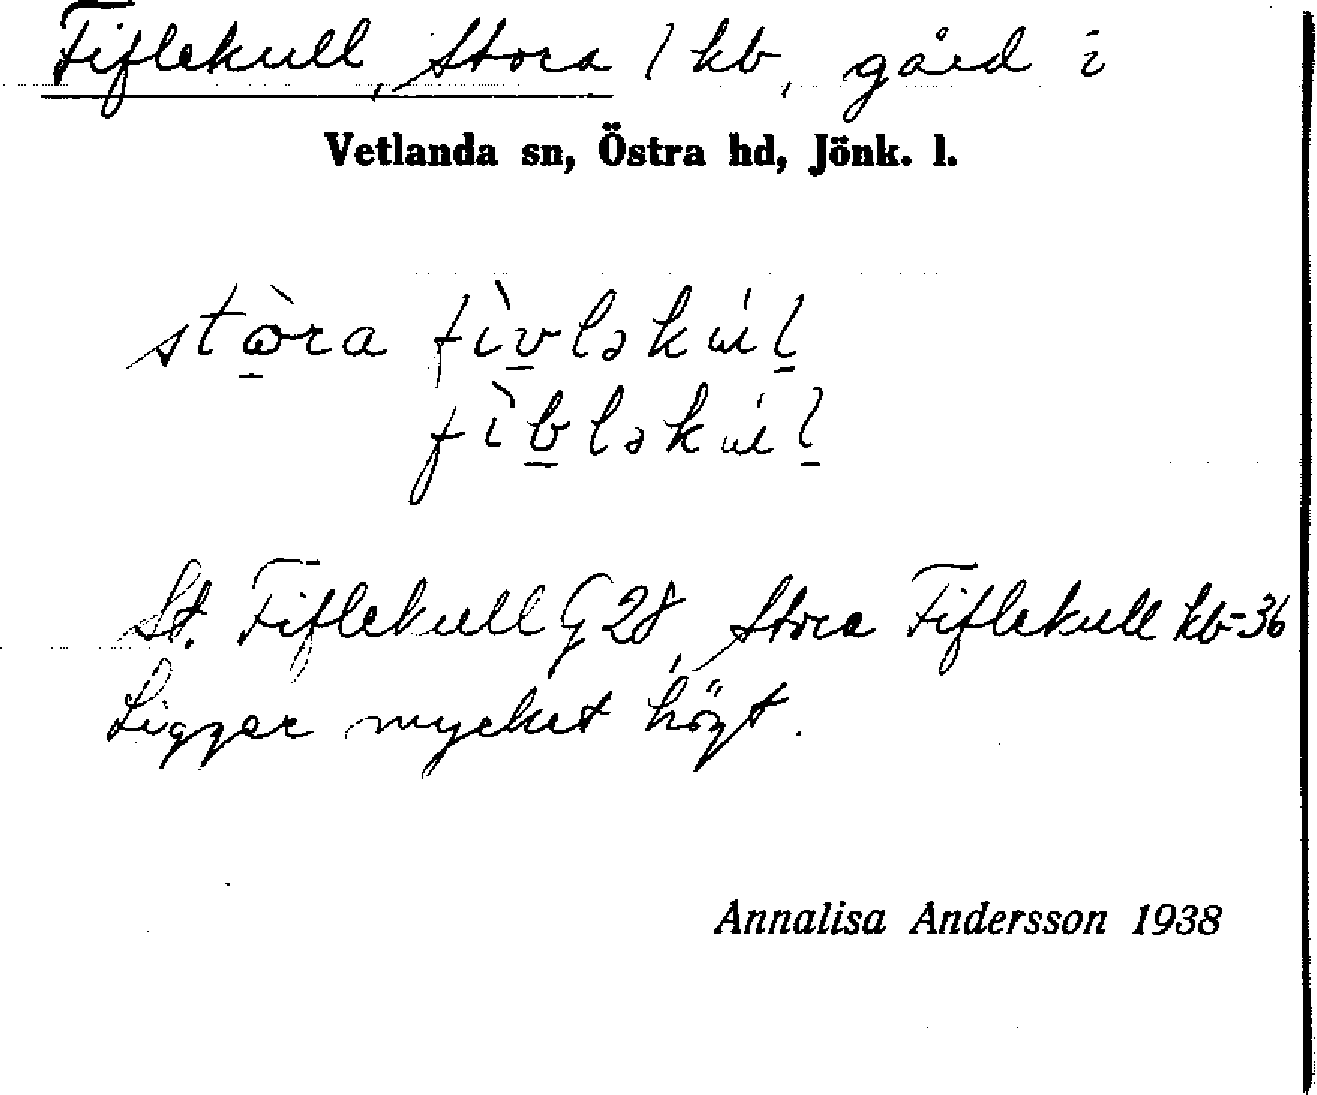 Fiflekull, Stora / kb, gård i
Vetlanda sn, Östra hd, Jönk. l.
stòra fìvləkúl
fìbləkúl
St. Fiflekull G 28, Stora Fiflekull kb-36
Ligger mycket högt.
Annalisa Andersson 1938